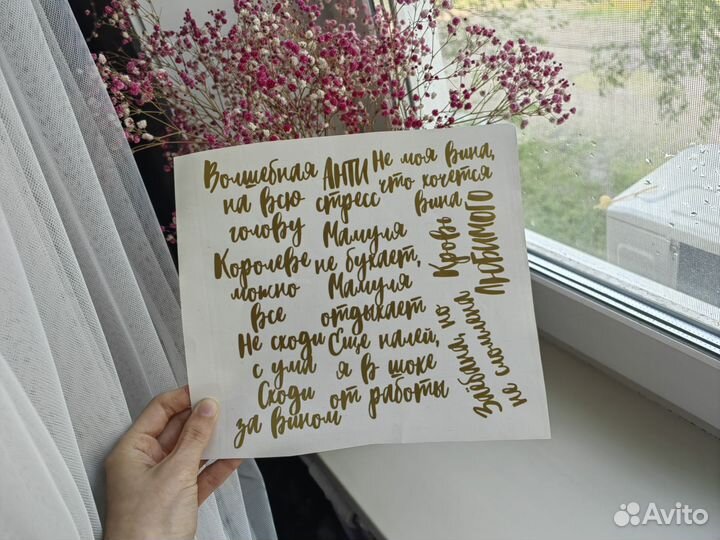 Волшебная
на всю
голову
АНТИ
стресс
Не моя вина,
что хочется
вина
Королеве
можно
все
Мамуля
не бухает,
Мамуля
отдыхает
Кровь
ЛЮБИМОГО
Не сходи
с ума
Сходи
за вином
Еще налей,
я в шоке
от работы
Заебала, но
не сломлена
Avito